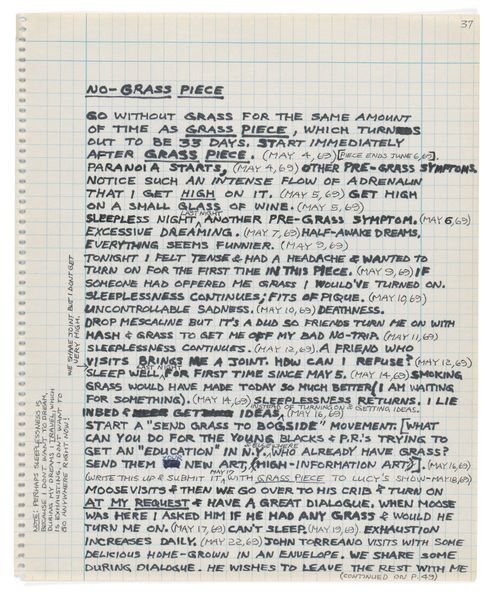 37
NO-GRASS PIECE
GO WITHOUT GRASS FOR THE SAME AMOUNT
OF TIME AS GRASS PIECE, WHICH TURNS
OUT TO BE 33 DAYS. START IMMEDIATELY
AFTER GRASS PIECE. (MAY 4, 69) [PIECE ENDS JUNE 6, 69].
PARANOIA STARTS, (MAY 4, 69) OTHER PRE-GRASS SYMPTOMS.
NOTICE SUCH AN INTENSE FLOW OF ADRENALIN
THAT I GET HIGH ON IT. (MAY 5, 69) GET HIGH
ON A SMALL GLASS OF WINE. (MAY 5, 69)
LAST NIGHT
SLEEPLESS NIGHT, ANOTHER PRE-GRASS SYMPTOM. (MAY 6, 69)
EXCESSIVE DREAMING. (MAY 7, 69) HALF-AWAKE DREAMS,
EVERYTHING SEEMS FUNNIER. (MAY 9, 69)
TONIGHT I FELT TENSE & HAD A HEADACHE & WANTED TO
TURN ON FOR THE FIRST TIME IN THIS PIECE. (MAY 9, 69) IF
SOMEONE HAD OFFERED ME GRASS I WOULD'VE TURNED ON.
SLEEPLESSNESS CONTINUES; FITS OF PIQUE. (MAY 10, 69)
UNCONTROLLABLE SADNESS. (MAY 10, 69) DEATHNESS.
DROP MESCALINE BUT IT'S A DUD SO FRIENDS TURN ME ON WITH
HASH & GRASS TO GET ME OFF MY BAD NO-TRIP. (MAY 11, 69)
SLEEPLESSNESS CONTINUES. (MAY 12, 69) A FRIEND WHO
VISITS BRINGS ME A JOINT. HOW CAN I REFUSE? (MAY 12, 69)
LAST NIGHT
SLEEP WELL, FOR FIRST TIME SINCE MAY 5. (MAY 14, 69) SMOKING
GRASS WOULD HAVE MADE TODAY SO MUCH BETTER (I AM WAITING
FOR SOMETHING). (MAY 14, 69) SLEEPLESSNESS RETURNS. I LIE
INSTEAD OF TURNING ON & GETTING IDEAS.
IN BED & GET IDEAS, (MAY 16, 69)
START A "SEND GRASS TO BOGSIDE" MOVEMENT. [WHAT
CAN YOU DO FOR THE YOUNG BLACKS & P.R.'S TRYING TO
GET AN "EDUCATION" IN N.Y., WHO ALREADY HAVE GRASS?
SEND THEM YOUR NEW ART, (HIGH-INFORMATION ART)]. (MAY 16, 69)
MAY 17?
(WRITE THIS UP & SUBMIT IT, WITH GRASS PIECE TO LUCY'S SHOW-MAY 18, 69)
MOOSE VISITS & THEN WE GO OVER TO HIS CRIB & TURN ON
AT MY REQUEST & HAVE A GREAT DIALOGUE. WHEN MOOSE
WAS HERE I ASKED HIM IF HE HAD ANY GRASS & WOULD HE
TURN ME ON. (MAY 17, 69) CAN'T SLEEP. (MAY 19, 69) EXHAUSTION
INCREASES DAILY. (MAY 22, 69) JOHN TORREANO VISITS WITH SOME
DELICIOUS HOME-GROWN IN AN ENVELOPE. WE SHARE SOME
DURING DIALOGUE. HE WISHES TO LEAVE THE REST WITH ME
(CONTINUED ON P. 49)
WE SHARE JOINT BUT I DON'T GET
VERY HIGH.
NOTE: PERHAPS SLEEPLESSNESS IS
BECAUSE I DON'T WANT TO DREAM.
DURING MY DREAMS I TRAVEL, WHICH
IS EXHAUSTING. I DON'T WANT TO
GO ANYWHERE RIGHT NOW!